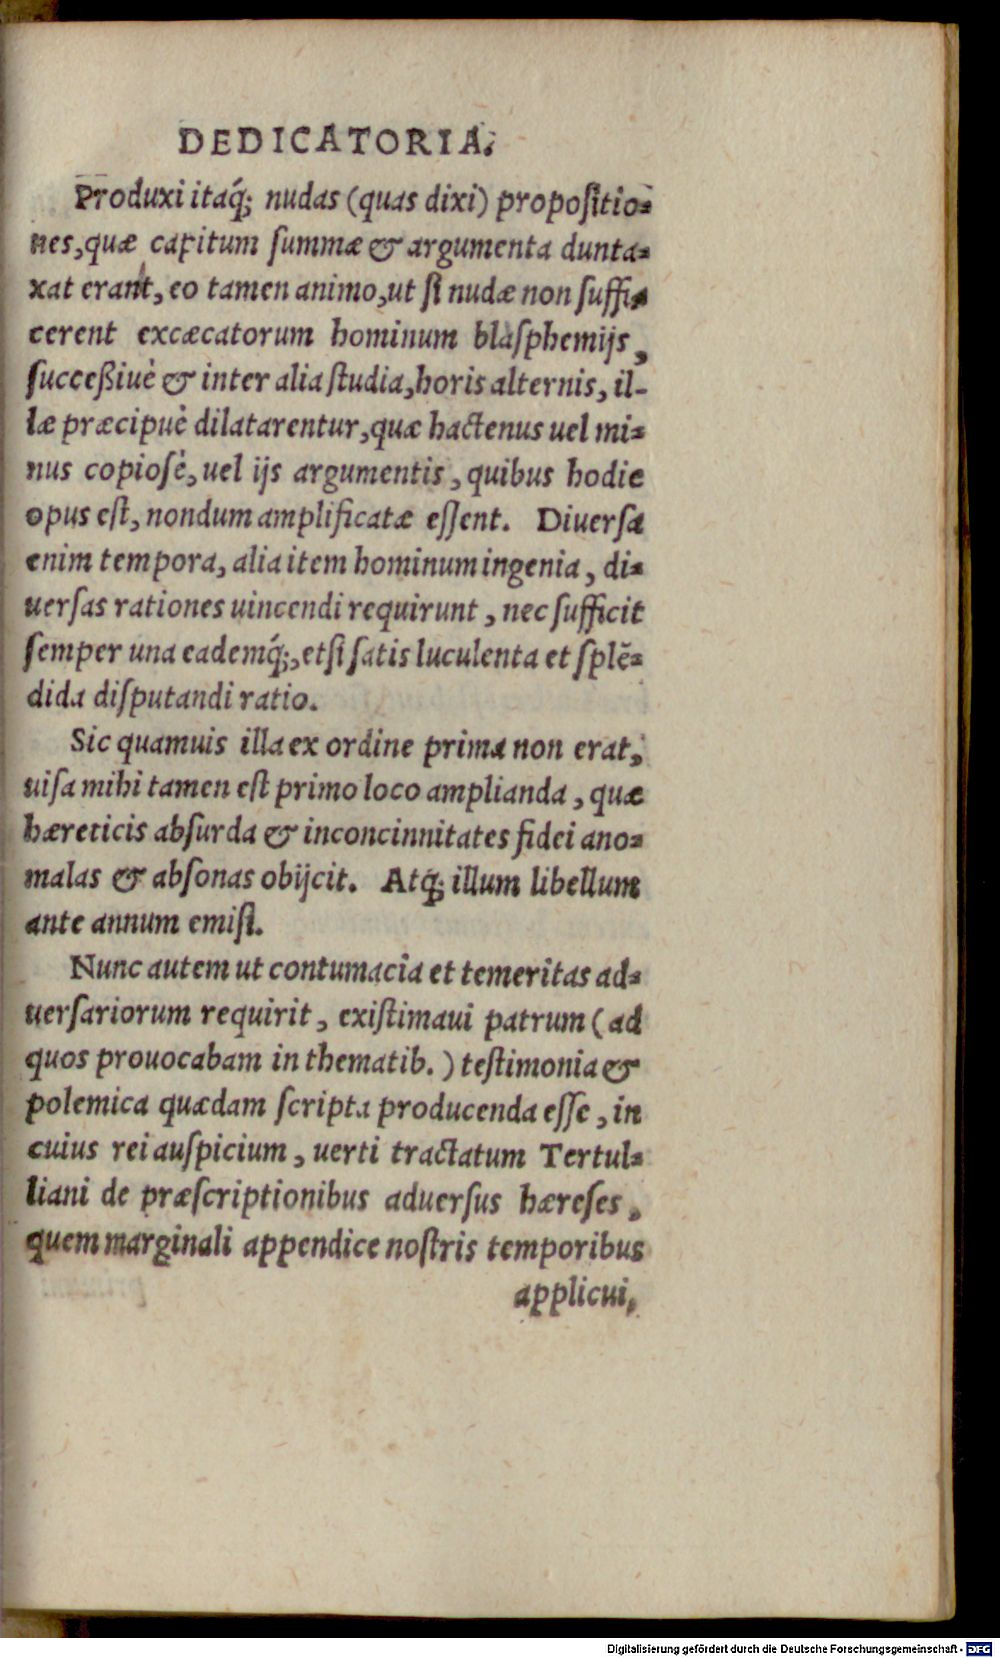 DEDICATORIA.
Produxi itaq́; nudas (quas dixi) propoſitio-
nes, quæ capitum ſummæ & argumenta dunta-
xat erant, eo tamen animo, ut ſi nudæ non ſuffi-
cerent excæcatorum hominum blaſphemijs,
ſucceßiuè & inter alia ſtudia, horis alternis, il-
læ præcipuè dilatarentur, quæ hactenus uel mi-
nus copioſè, uel ijs argumentis, quibus hodie
opus eſt, nondum amplificatæ eſſent. Diuerſa
enim tempora, alia item hominum ingenia, di-
uerſas rationes uincendi requirunt, nec ſufficit
ſemper una eademq́;, etſi ſatis luculenta et ſplẽ-
dida diſputandi ratio.
Sic quamuis illa ex ordine prima non erat,
uiſa mihi tamen eſt primo loco amplianda, quæ
hæreticis abſurda & inconcinnitates fidei ano-
malas & abſonas obijcit. Atq; illum libellum
ante annum emiſi.
Nunc autem ut contumacia et temeritas ad-
uerſariorum requirit, exiſtimaui patrum (ad
quos prouocabam in thematib.) teſtimonia &
polemica quædam ſcripta producenda eſſe, in
cuius rei auſpicium, uerti tractatum Tertul-
liani de præſcriptionibus aduerſus hæreſes,
quem marginali appendice noſtris temporibus
applicui,
Digitalisierung gefördert durch die Deutsche Forschungsgemeinschaft - DFG